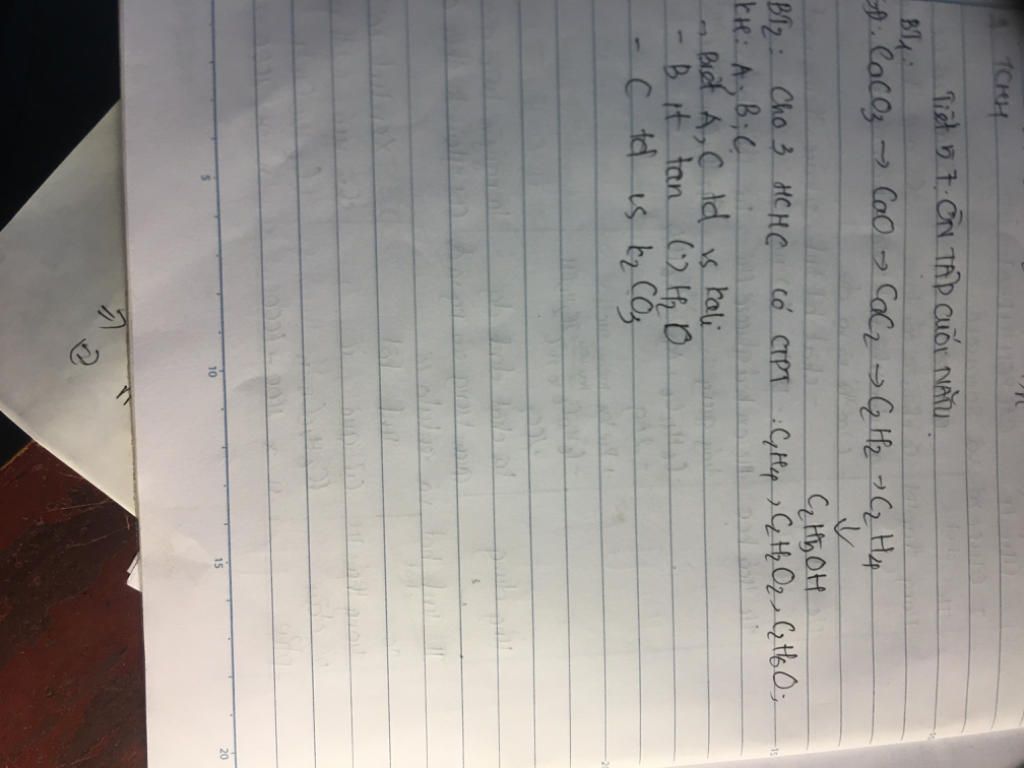 TCHH
Tiết 57: ÔN TẬP CUỐI NĂM.
BT1:
SĐ: CaCO3 → CaO → CaC2 → C2H2 → C2H4
↓
C2H5OH
BT2: Cho 3 HCHC có CTPT: C2H4, C2H4O2, C2H6O,
KH: A, B, C
- Biết A, C td vs kali
- B ít tan (.) H2O
- C td vs K2CO3
5
10
15
20